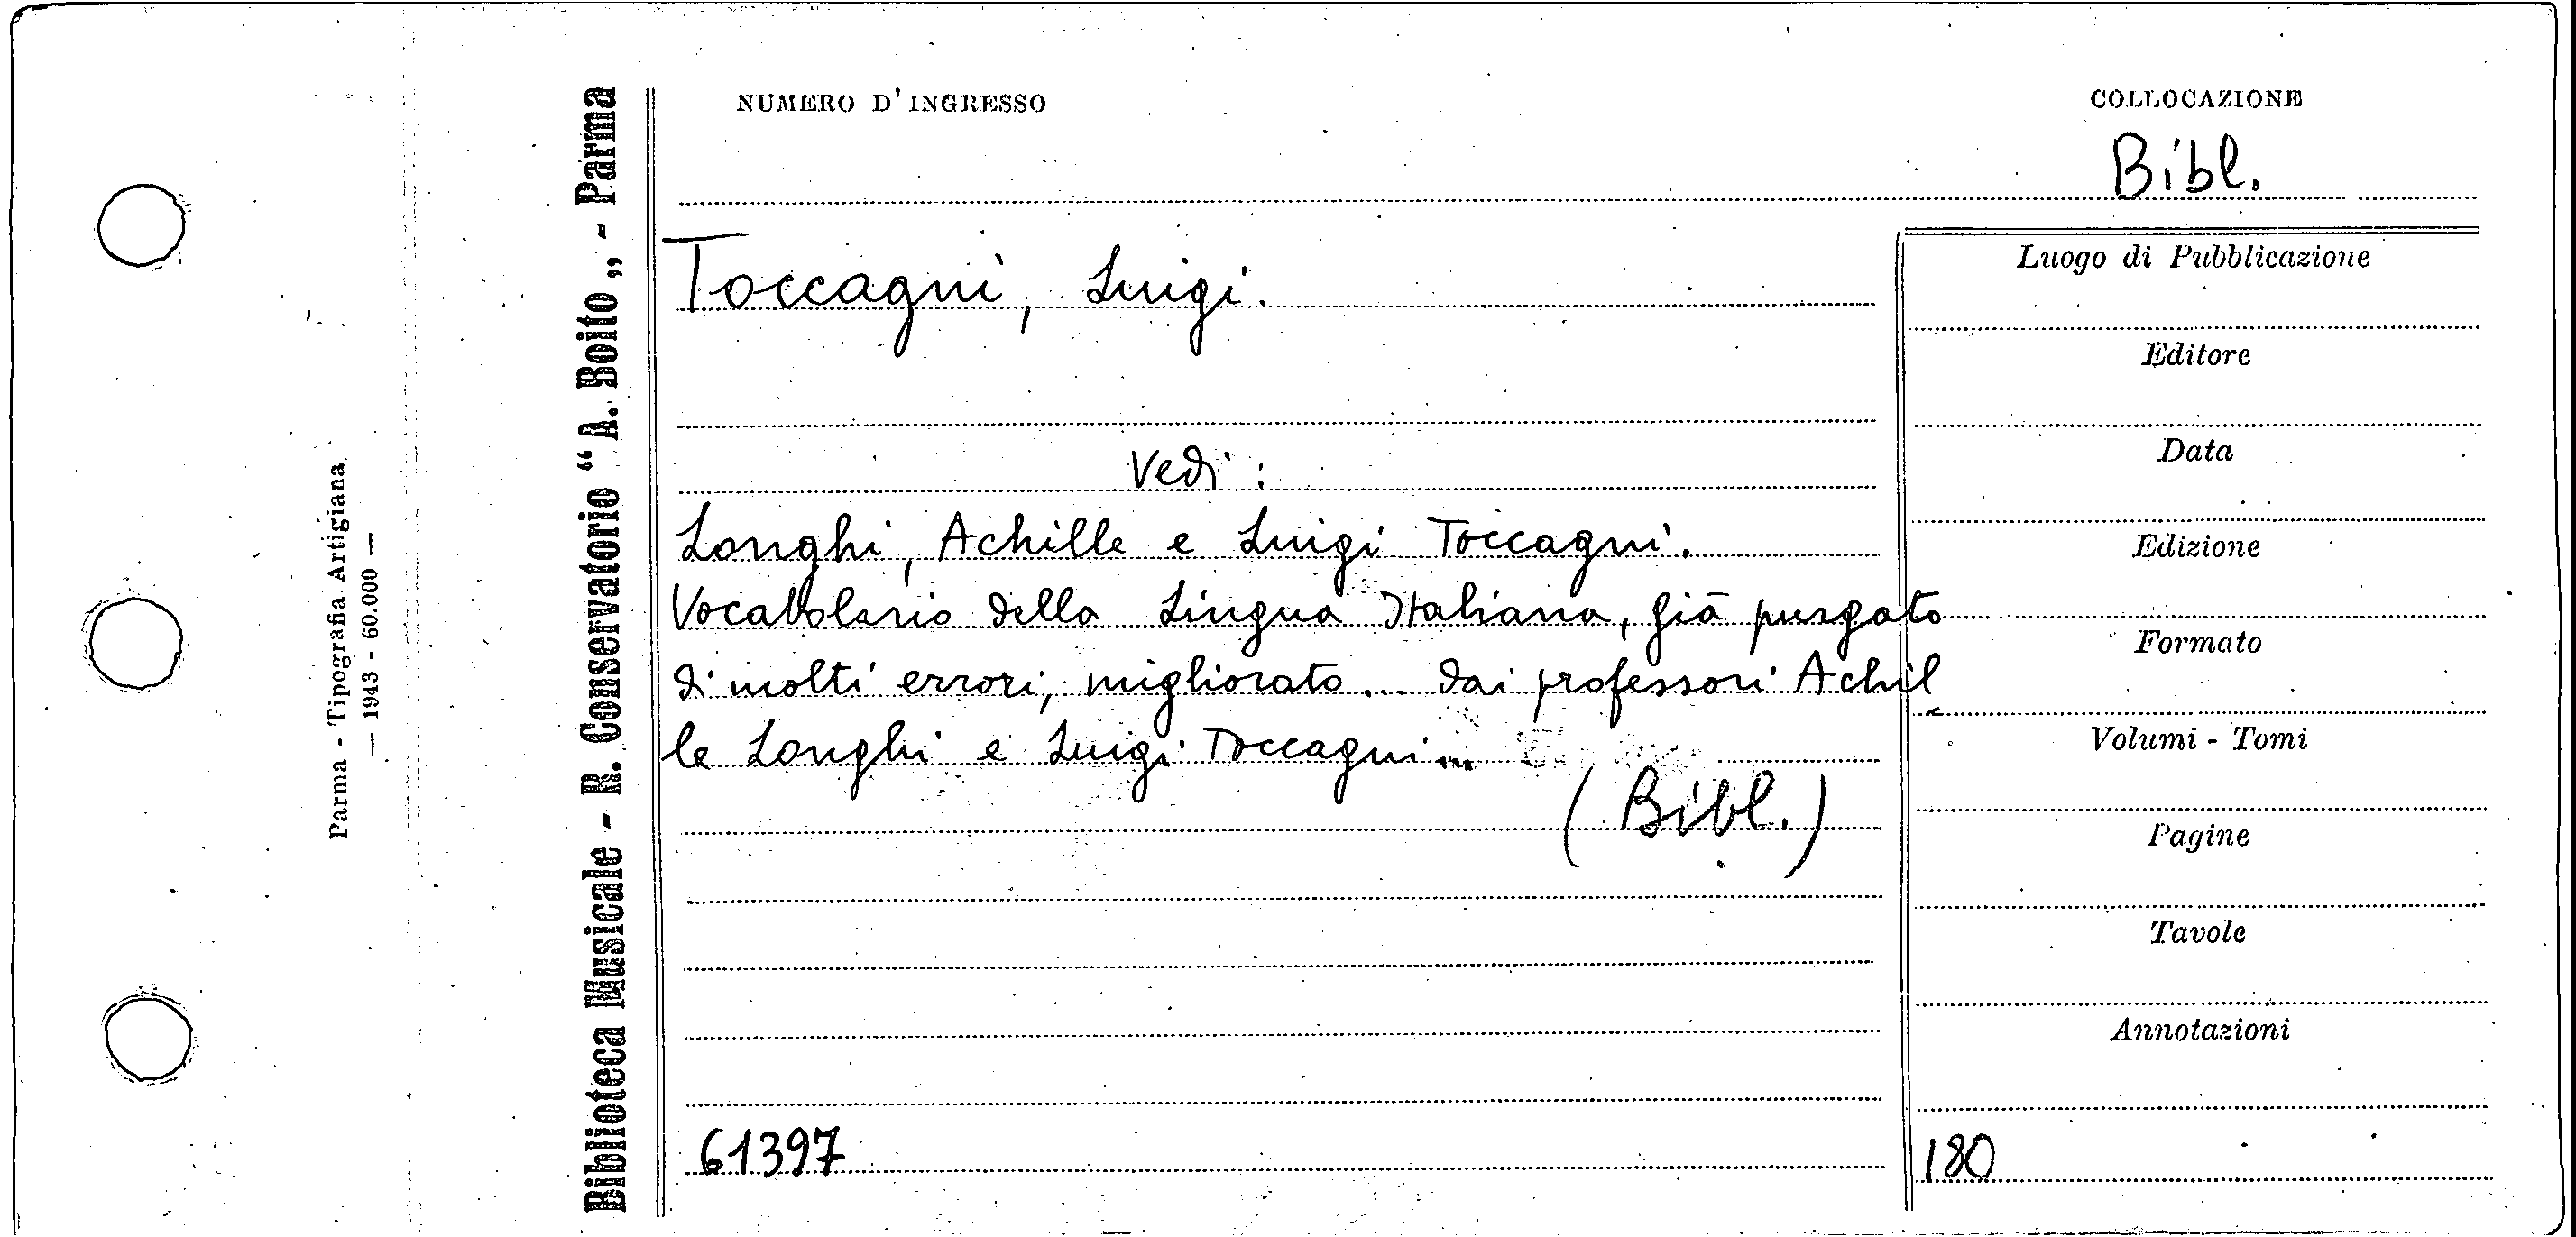 NUMERO D'INGRESSO
COLLOCAZIONE
Bibl.
Toccagni, Luigi.
Vedi:
Longhi, Achille e Luigi Toccagni.
Vocabolario della Lingua Italiana, già purgato
di molti errori, migliorato... dai professori Achil
le Longhi e Luigi Toccagni...
(Bibl.)
61397
Luogo di Pubblicazione
Editore
Data
Edizione
Formato
Volumi - Tomi
Pagine
Tavole
Annotazioni
180
Biblioteca Musicale - R. Conservatorio “A. Boito„ - Parma
Parma - Tipografia Artigiana
— 1943 - 60.000 —